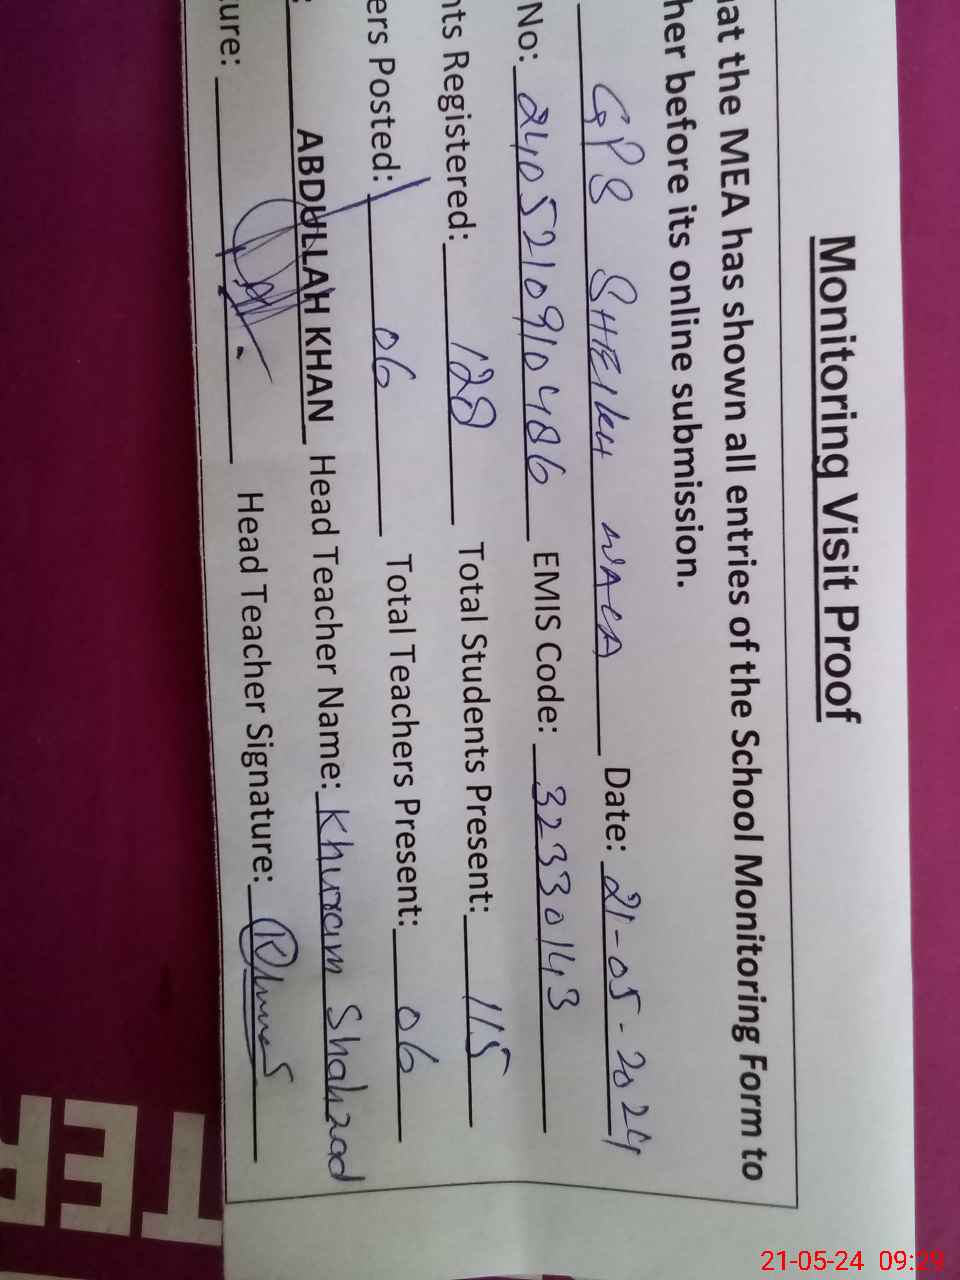 Monitoring Visit Proof
at the MEA has shown all entries of the School Monitoring Form to
her before its online submission.
GPS SHEIKH WALA Date: 21-05-2024
No: 2405210910486 EMIS Code: 32330143
nts Registered: 128 Total Students Present: 115
ers Posted: 06 Total Teachers Present: 06
: ABDULLAH KHAN Head Teacher Name: Khuram Shahzad
ure: Head Teacher Signature:
TER
21-05-24 09:29